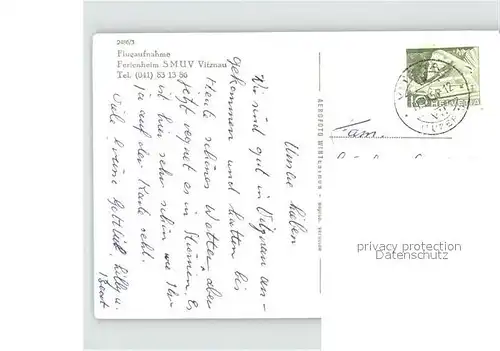 2496/3
Flugaufnahme
Ferienheim SMUV Vitznau
Tel. (041) 83 13 86
Unsere Lieben
Wir sind gut in Vitznau an-
gekommen und hatten bis
Heute schönes Wetter, aber
jetzt regnet es in Strömen. Es
ist hier sehr schön wie Ihr
ja auf der Karte seht.
Viele Grüsse Gottlieb, Lilly u.
Beat
AEROFOTO
HELVETIA
Fam.
privacy protection
Datenschutz